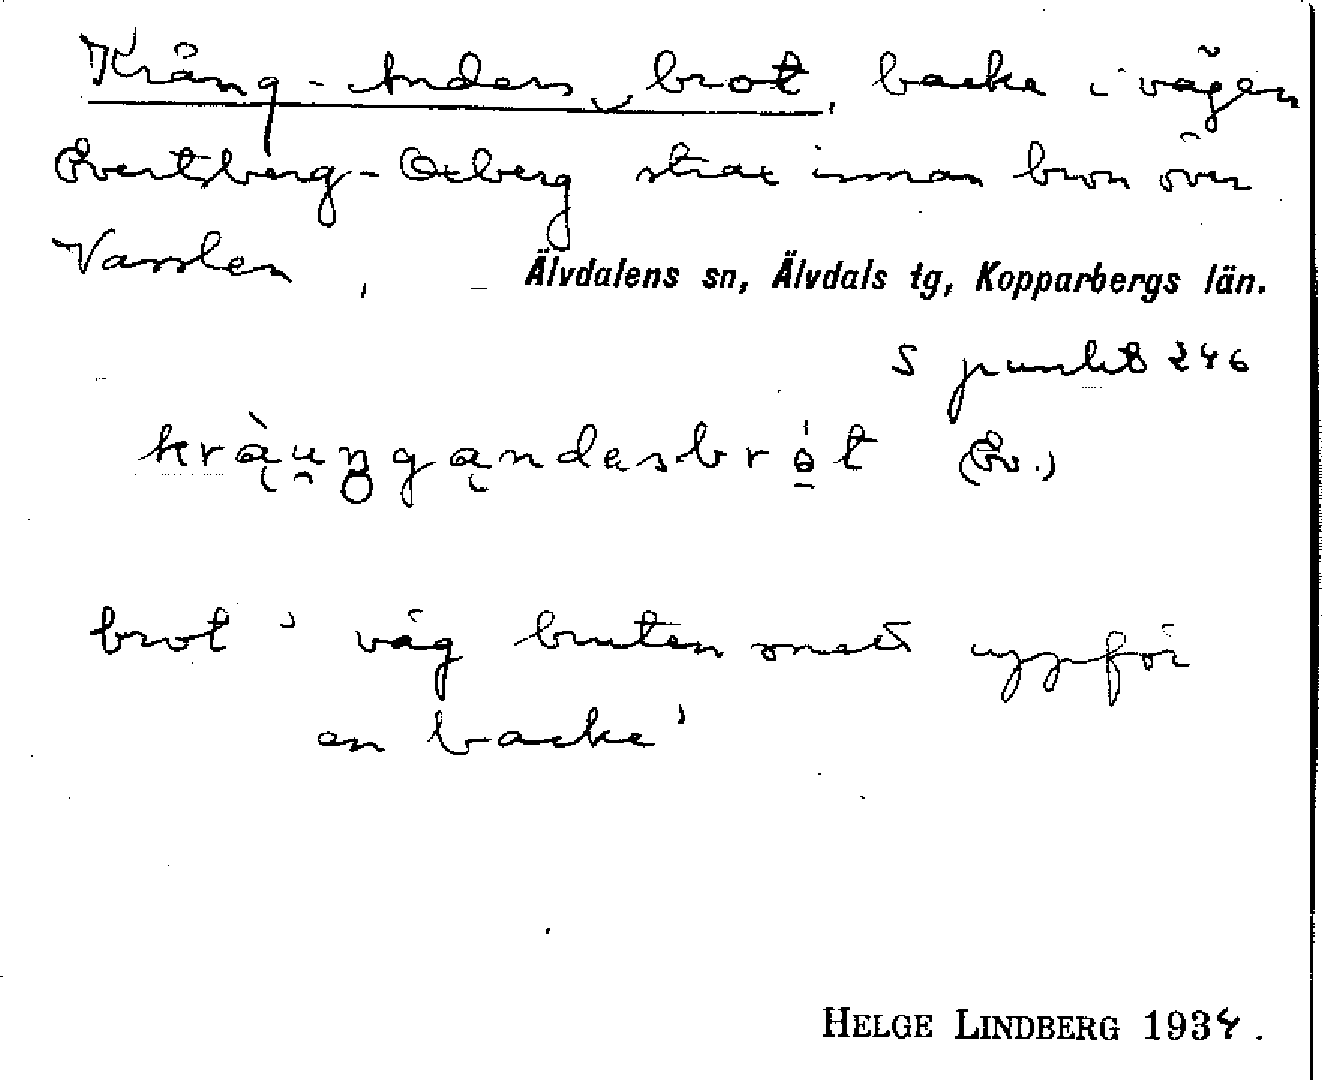 Krång-Anders brot, backe i vägen
Evertsberg-Oxberg strax innan bron över
Vasslen,
Älvdalens sn, Älvdals tg, Kopparbergs län.
S punkt 246
krą̀u̯ŋgąndasbrót (Ev.)
brot 'väg bruten snett uppför
en backe'
HELGE LINDBERG 1934.